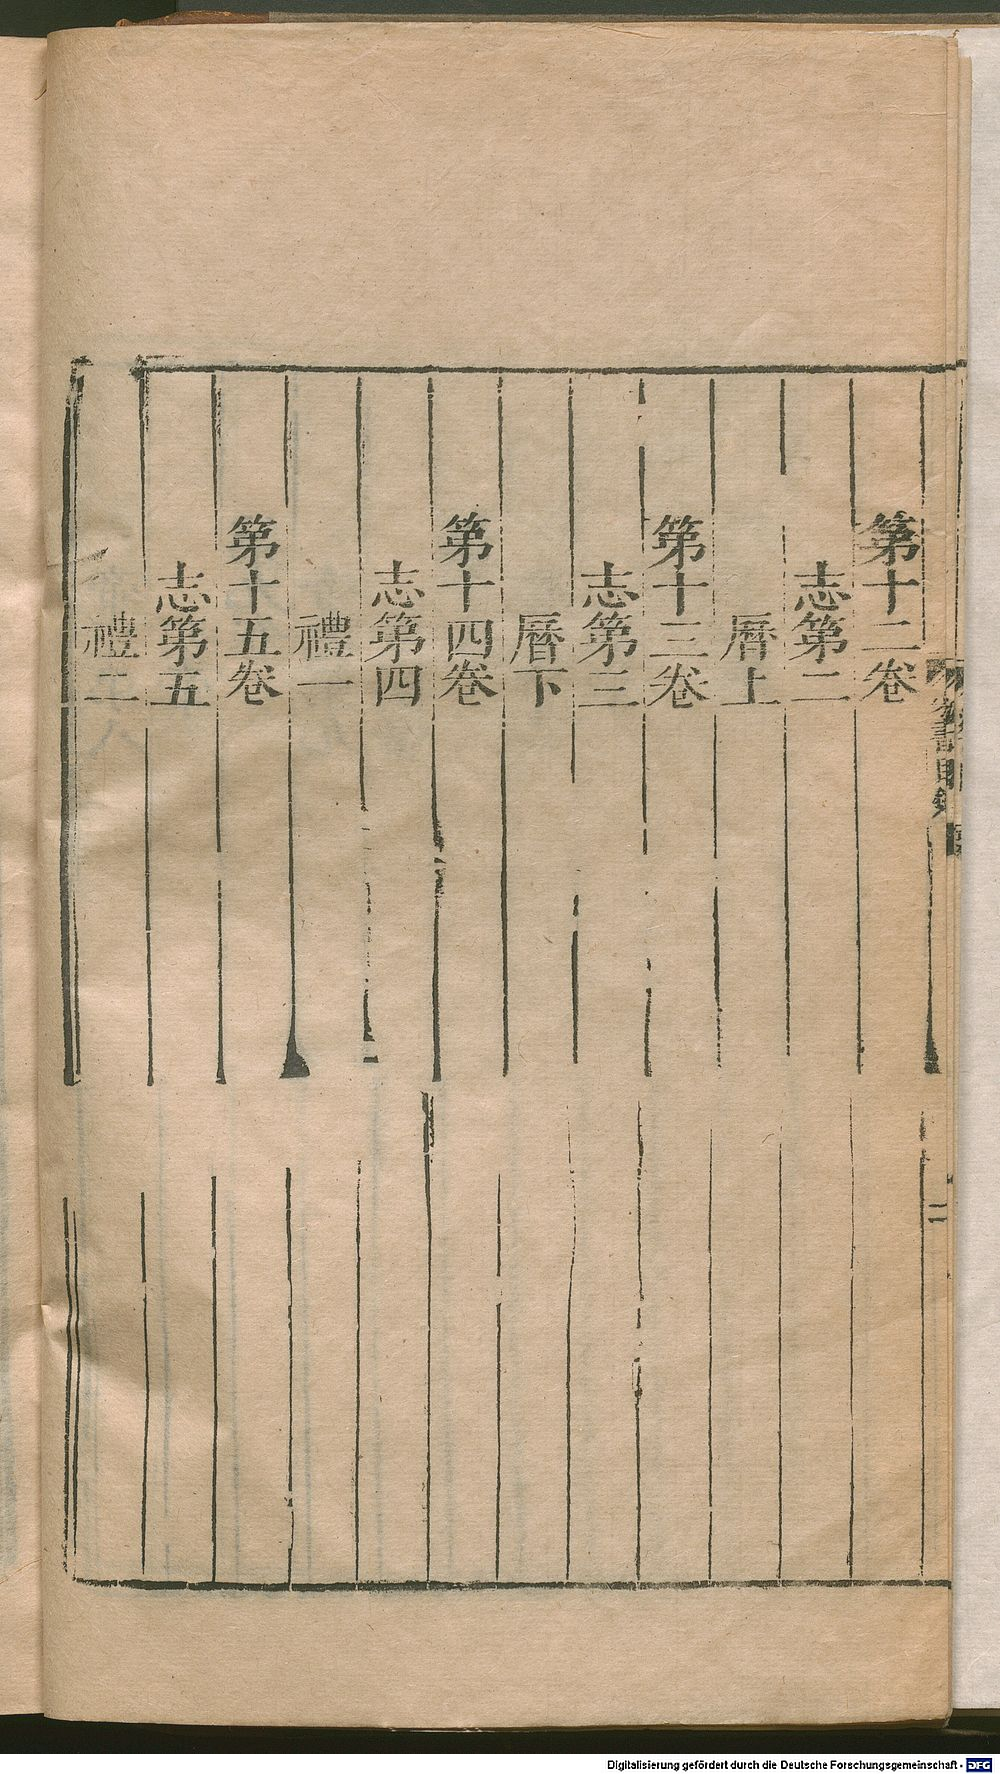 第十二卷
志第二
曆上
第十三卷
志第三
曆下
第十四卷
志第四
禮一
第十五卷
志第五
禮二
二
Digitalisierung gefördert durch die Deutsche Forschungsgemeinschaft - DFG